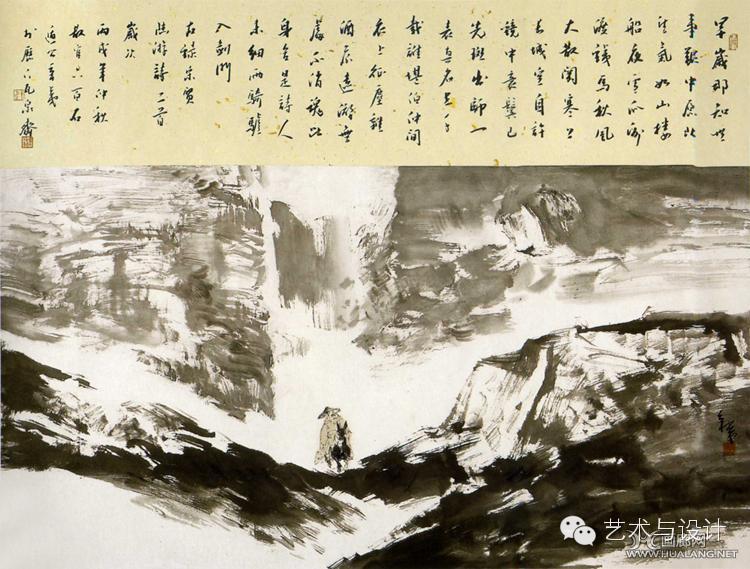 早歲那知世
事艱中原北
望氣如山樓
船夜雪瓜洲
渡鐵馬秋風
大散關塞上
長城空自許
鏡中衰鬢已
先斑出師一
表真名世千
載誰堪伯仲間
衣上征塵雜
酒痕遠游無
處不消魂此
身合是詩人
未細雨騎驢
入劍門
右録宋賢
陸游詩二首
歲次
丙戌年仲秋
艺术与设计
画廊网
WWW.HUALANG.NET